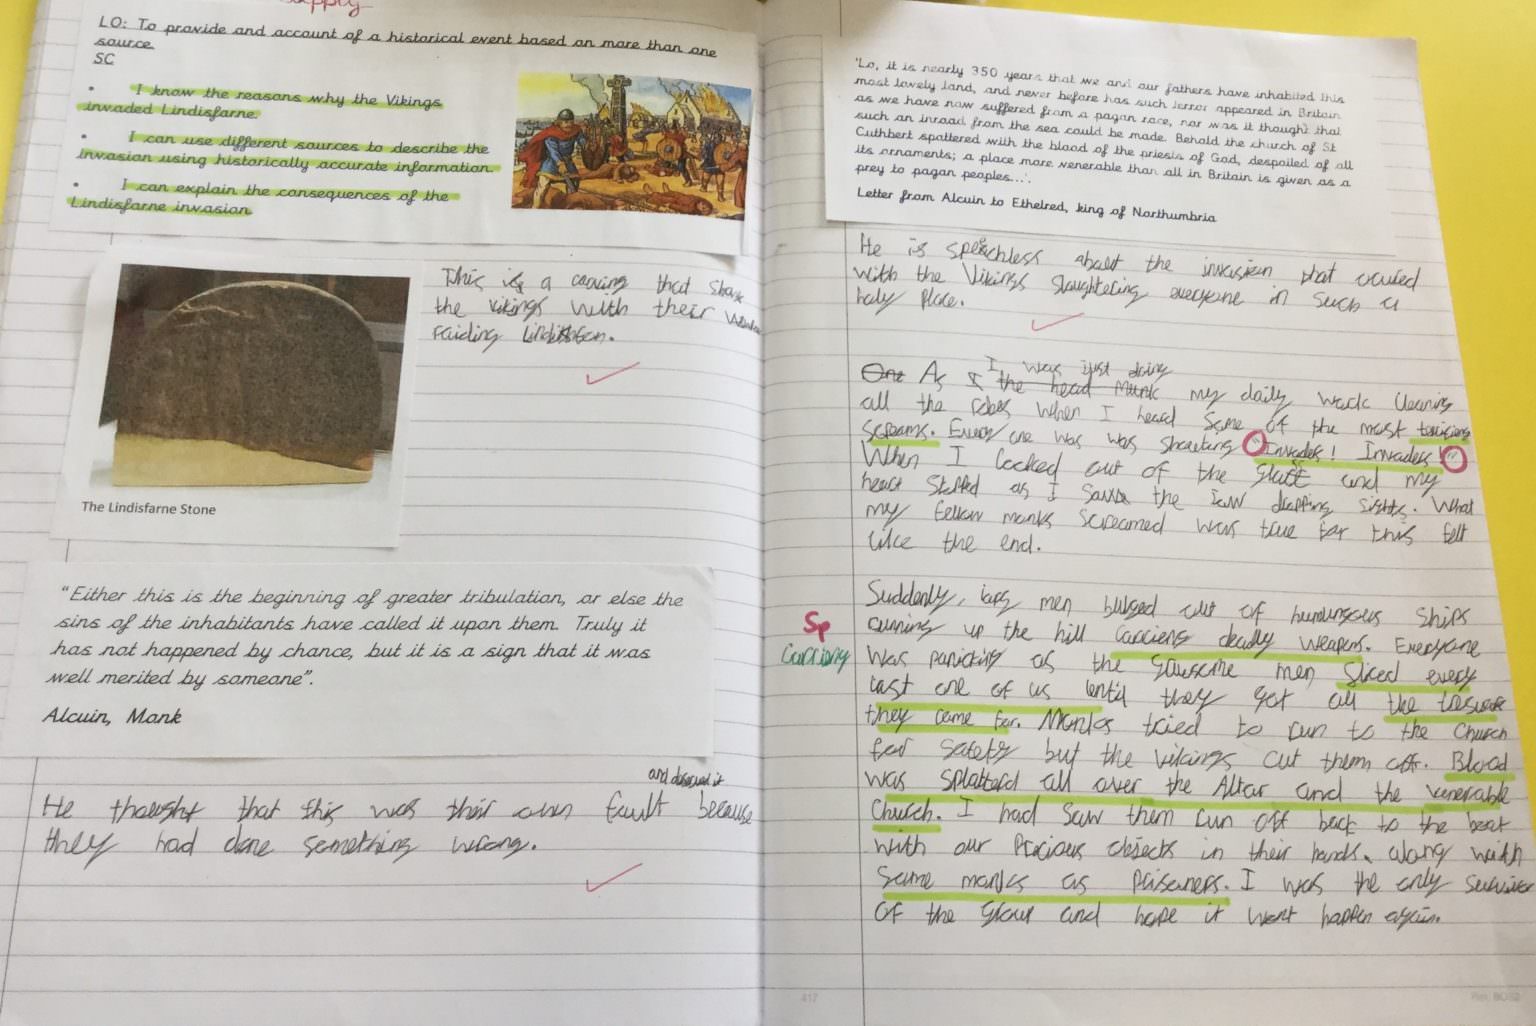 LO: To provide and account of a historical event based on more than one
source
SC
• I know the reasons why the Vikings
invaded Lindisfarne.
• I can use different sources to describe the
invasion using historically accurate information.
• I can explain the consequences of the
Lindisfarne invasion
This is a carving that
the vikings with their
raiding
The Lindisfarne Stone
"Either this is the beginning of greater tribulation, or else the
sins of the inhabitants have called it upon them. Truly it
has not happened by chance, but it is a sign that it was
well merited by someone".
Alcuin, Monk
and deserved it
He thought that this was their own fault because
they had done something wrong.
'Lo, it is nearly 350 years that we and our fathers have inhabited this
most lovely land, and never before has such terror appeared in Britain
as we have now suffered from a pagan race, nor was it thought that
such an inroad from the sea could be made. Behold the church of St
Cuthbert spattered with the blood of the priests of God, despoiled of all
its ornaments; a place more venerable than all in Britain is given as a
prey to pagan peoples...'.
Letter from Alcuin to Ethelred, king of Northumbria
He is speachless about the invasion that
with the Vikings slaughtering everyone in such a
holy place.
I was just doing
One As the head Munk my daily work cleaning
all the robes when I heard some of the most
screams. Every one was was shouting "Invaders! Invaders!"
When I looked out of the and my
heart as I the Jaw dropping sights. What
my fellow monks screamed was true for this felt
like the end.
Suddenly, men bulged out of ships
running up the hill deadly weapens. Everyone
Sp
Carrying
was panicking as the men sliced every
last one of us until they got all the
they came for. Monks tried to run to the Church
for safety but the vikings cut them off. Blood
was splatterd all over the Altar and the venerable
Church. I had saw them run off back to the boat
with our Precious objects in their hands, along with
some monks as prisoners. I was the only
of the group and hope it wont happen again.
417